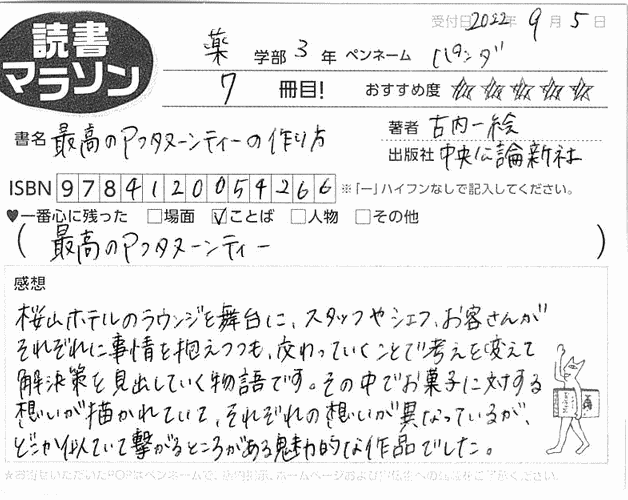 受付日 2022年 9月 5日
読書マラソン
薬 学部 3 年 ペンネーム パンダ
7 冊目! おすすめ度 ☆☆☆☆☆
書名 最高のアフタヌーンティーの作り方
著者 古内一絵
出版社 中央公論新社
ISBN 9784120054266 ※「ー」ハイフンなしで記入してください。
♥一番心に残った □場面 ☑ことば □人物 □その他
( 最高のアフタヌーンティー )
感想
桜山ホテルのラウンジを舞台に、スタッフやシェフ、お客さんが
それぞれに事情を抱えつつも、交わっていくことで考えを変えて
解決策を見出していく物語です。その中でお菓子に対する
想いが描かれていて、それぞれの想いが異なっているが、
どこか似ていて繋がるところがある魅力的な作品でした。
★お寄せいただいたPOPはペンネームで、店内掲示、ホームページおよび